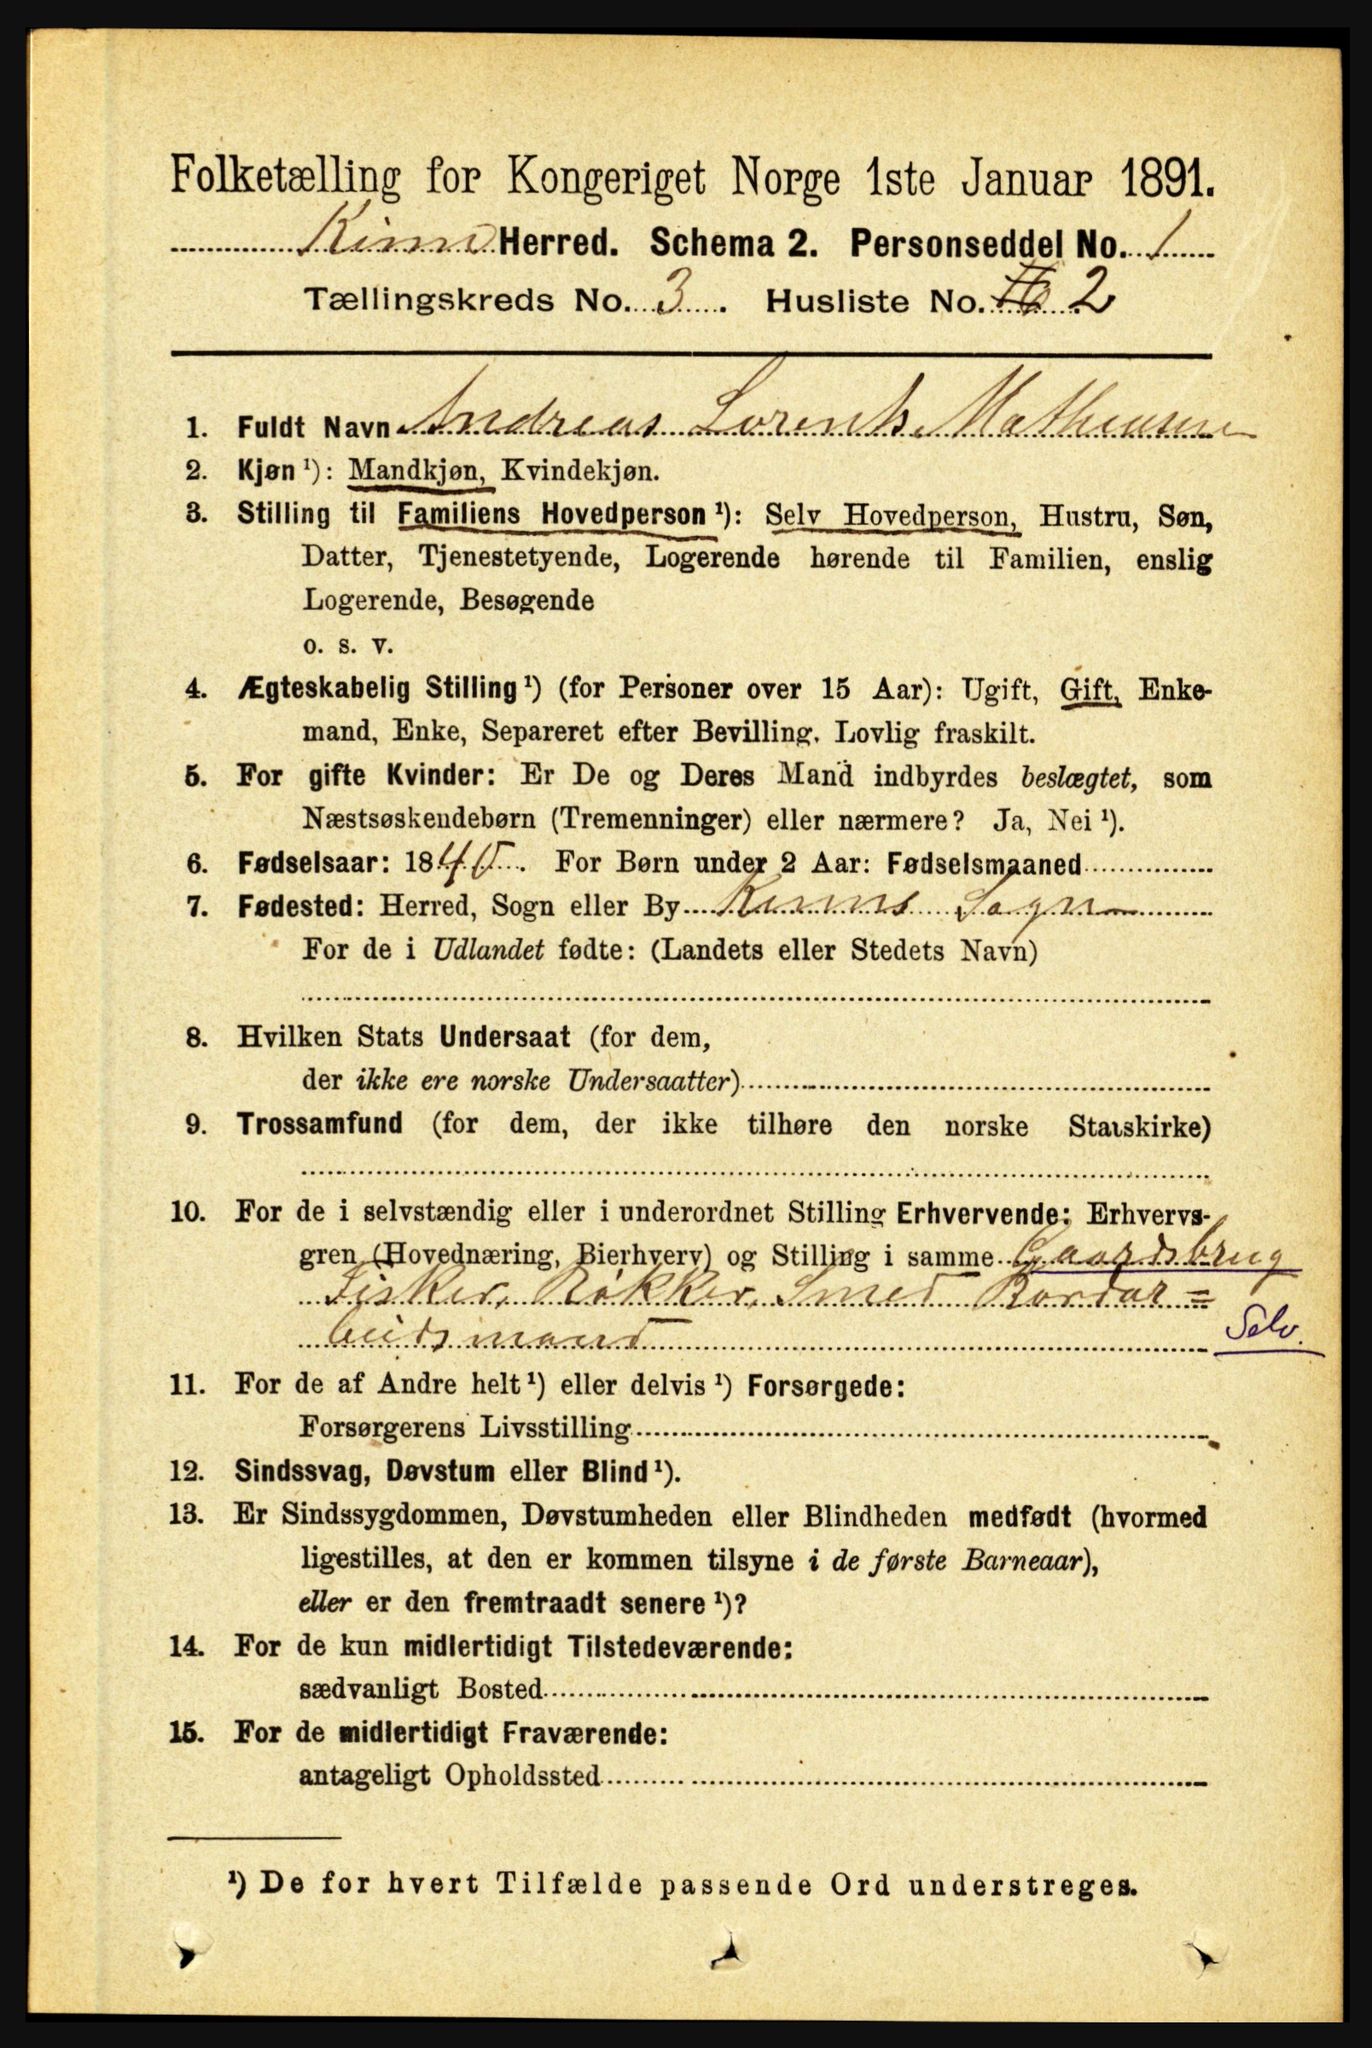 Folketælling for Kongeriget Norge 1ste Januar 1891.
Kinn Herred. Schema 2. Personseddel No. 1
Tællingskreds No. 3. Husliste No. 2
1. Fuldt Navn Andreas Lorents Matheusen
2. Kjøn ¹): Mandkjøn, Kvindekjøn.
3. Stilling til Familiens Hovedperson ¹): Selv Hovedperson, Hustru, Søn,
Datter, Tjenestetyende, Logerende hørende til Familien, enslig
Logerende, Besøgende
o. s. v.
4. Ægteskabelig Stilling ¹) (for Personer over 15 Aar): Ugift, Gift, Enke-
mand, Enke, Separeret efter Bevilling. Lovlig fraskilt.
5. For gifte Kvinder: Er De og Deres Mand indbyrdes beslægtet, som
Næstsøskendebørn (Tremenninger) eller nærmere? Ja, Nei ¹).
6. Fødselsaar: 1840. For Børn under 2 Aar: Fødselsmaaned
7. Fødested: Herred, Sogn eller By Kinns Sogn
For de i Udlandet fødte: (Landets eller Stedets Navn)
8. Hvilken Stats Undersaat (for dem,
der ikke ere norske Undersaatter)
9. Trossamfund (for dem, der ikke tilhøre den norske Statskirke)
10. For de i selvstændig eller i underordnet Stilling Erhvervende: Erhvervs-
gren (Hovednæring, Bierhverv) og Stilling i samme Gaardsbrug
Fisker, Røkker, Smed Bordar=
beidsmand
Selv.
11. For de af Andre helt ¹) eller delvis ¹) Forsørgede:
Forsørgerens Livsstilling
12. Sindssvag, Døvstum eller Blind ¹).
13. Er Sindssygdommen, Døvstumheden eller Blindheden medfødt (hvormed
ligestilles, at den er kommen tilsyne i de første Barneaar),
eller er den fremtraadt senere ¹)?
14. For de kun midlertidigt Tilstedeværende:
sædvanligt Bosted
15. For de midlertidigt Fraværende:
antageligt Opholdssted
¹) De for hvert Tilfælde passende Ord understreges.